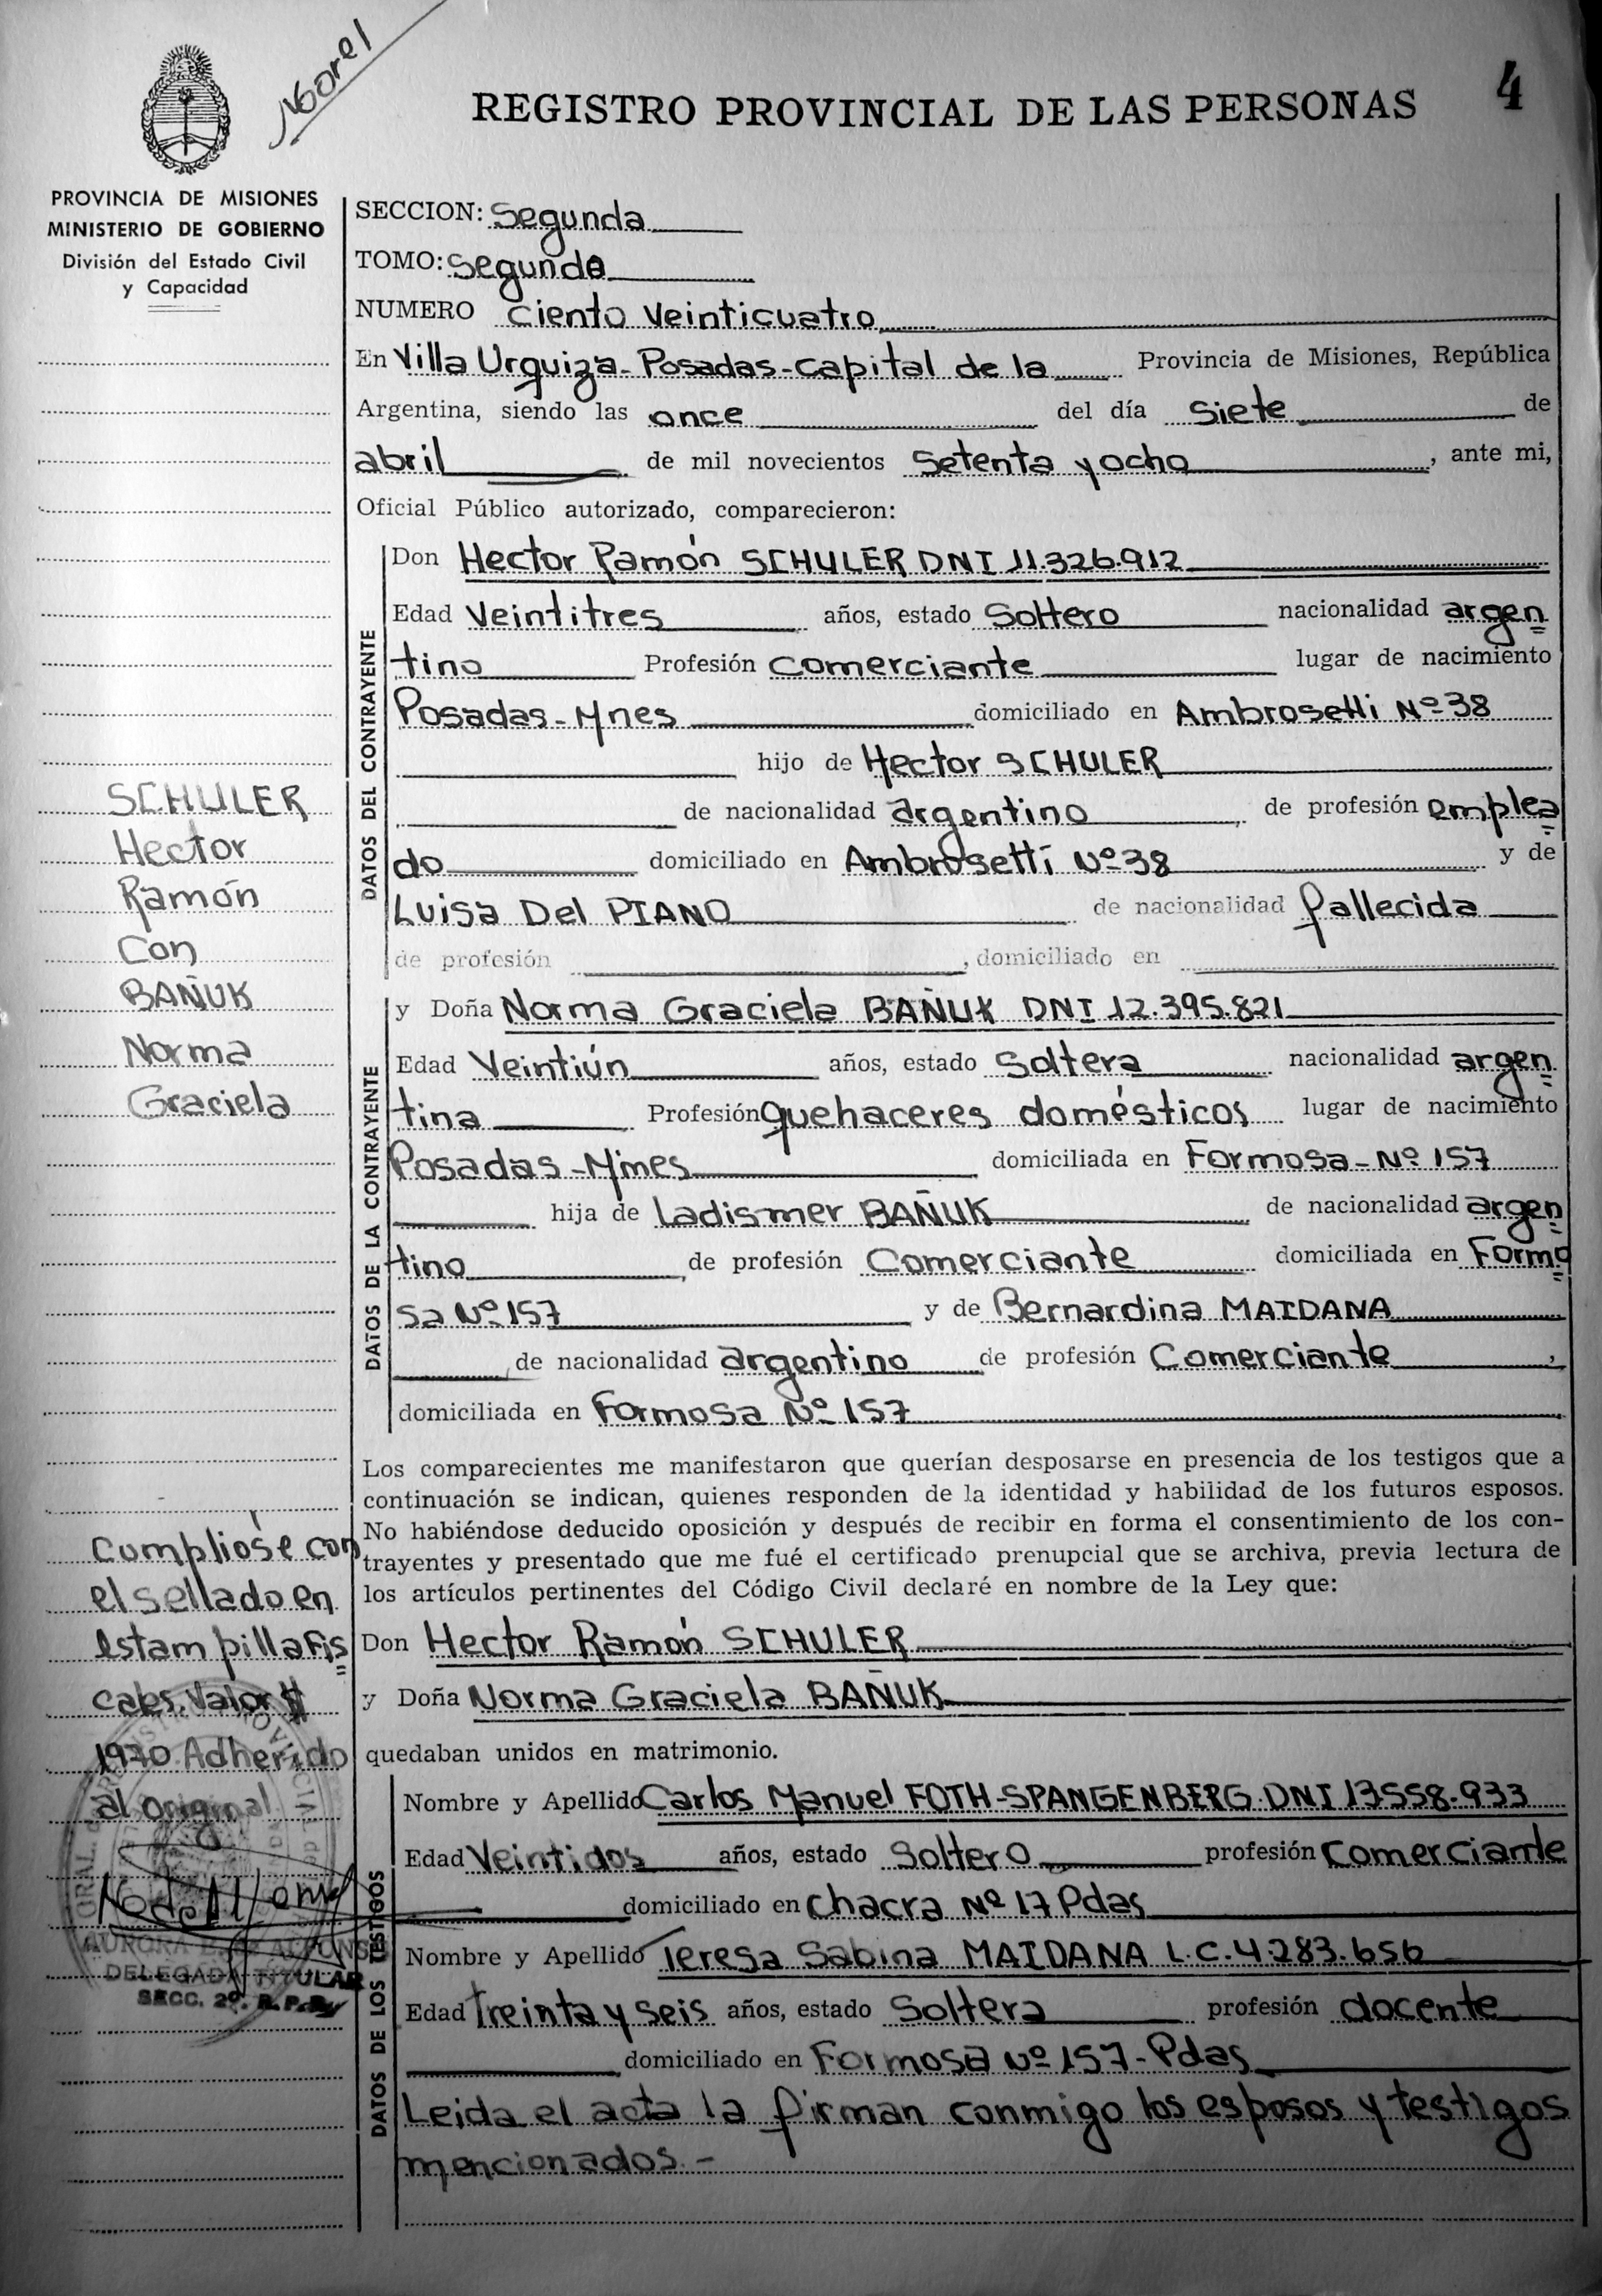 Morel
REGISTRO PROVINCIAL DE LAS PERSONAS
4
PROVINCIA DE MISIONES
MINISTERIO DE GOBIERNO
División del Estado Civil
y Capacidad
SECCION: Segunda
TOMO: Segundo
NUMERO ciento veinticuatro
En Villa Urquiza - Posadas - capital de la Provincia de Misiones, República
Argentina, siendo las once del día siete de
abril de mil novecientos setenta y ocho, ante mi,
Oficial Público autorizado, comparecieron:
DATOS DEL CONTRAYENTE
Don Hector Ramón SCHULER DNI 11.326.912
Edad Veintitres años, estado Soltero nacionalidad argen
tino Profesión comerciante lugar de nacimiento
Posadas - Mnes domiciliado en Ambrosetti Nº 38
hijo de Hector SCHULER
de nacionalidad argentino de profesión emplea
do domiciliado en Ambrosetti Nº 38 y de
Luisa Del PIANO de nacionalidad fallecida
de profesión , domiciliado en
DATOS DE LA CONTRAYENTE
y Doña Norma Graciela BAÑUK DNI 12.395.821
Edad Veintiún años, estado Soltera nacionalidad argen
tina Profesión quehaceres domésticos lugar de nacimiento
Posadas - Mines domiciliada en Formosa - Nº 157
hija de Ladismer BAÑUK de nacionalidad argen
tino, de profesión Comerciante domiciliada en Formo
sa Nº 157 y de Bernardina MAIDANA
, de nacionalidad argentino de profesión Comerciante,
domiciliada en Formosa Nº 157
SCHULER
Hector
Ramón
Con
BAÑUK
Norma
Graciela
Los comparecientes me manifestaron que querían desposarse en presencia de los testigos que a
continuación se indican, quienes responden de la identidad y habilidad de los futuros esposos.
No habiéndose deducido oposición y después de recibir en forma el consentimiento de los con-
trayentes y presentado que me fué el certificado prenupcial que se archiva, previa lectura de
los artículos pertinentes del Código Civil declaré en nombre de la Ley que:
Don Hector Ramón SCHULER
y Doña Norma Graciela BAÑUK
quedaban unidos en matrimonio.
Cumplióse con
el sellado en
estampilla fis
cales. Valor $
1970 Adherido
al original
AURORA B. DE ALFONSO
DELEGADA TITULAR
SECC. 2º. R. P. P.
DATOS DE LOS TESTIGOS
Nombre y Apellido Carlos Manuel FOTH-SPANGENBERG DNI 13558.933
Edad Veintidos años, estado Soltero profesión comerciante
domiciliado en chacra Nº 17 Pdas
Nombre y Apellido Teresa Sabina MAIDANA L.C. 4.283.656
Edad Treinta y seis años, estado Soltera profesión docente
domiciliado en Formosa Nº 157 - Pdas
Leida el acta la firman conmigo los esposos y testigos
mencionados. -